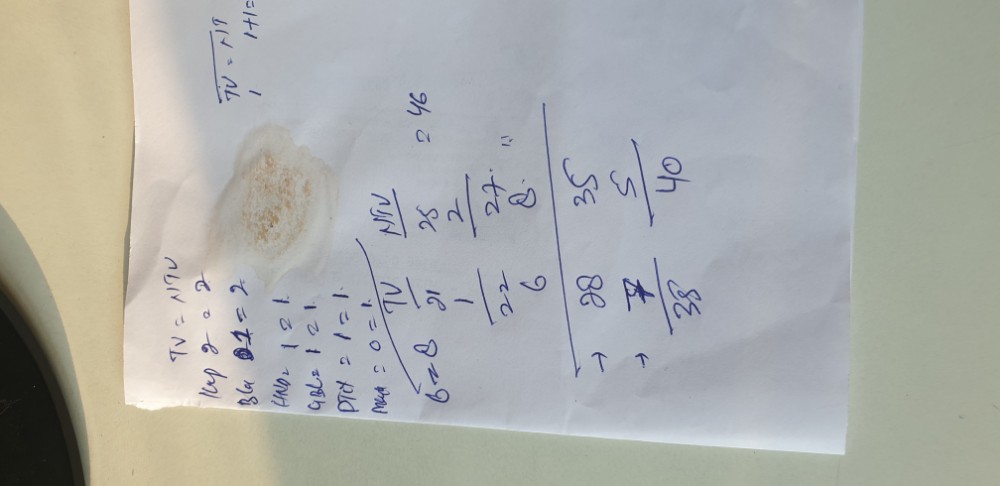 TV = NT
1 1+1=
TV = NTV
Kup 2 = 2
Blu 1 = 2
HND = 1 = 1
GBL = 1 = 1.
PTCH = 1 = 1.
= 0 = 1.
6 = 8 TV NTV
21 25 = 46
1 2
22 27. =
6 8.
→ 28 35
→ 7 5
38 40